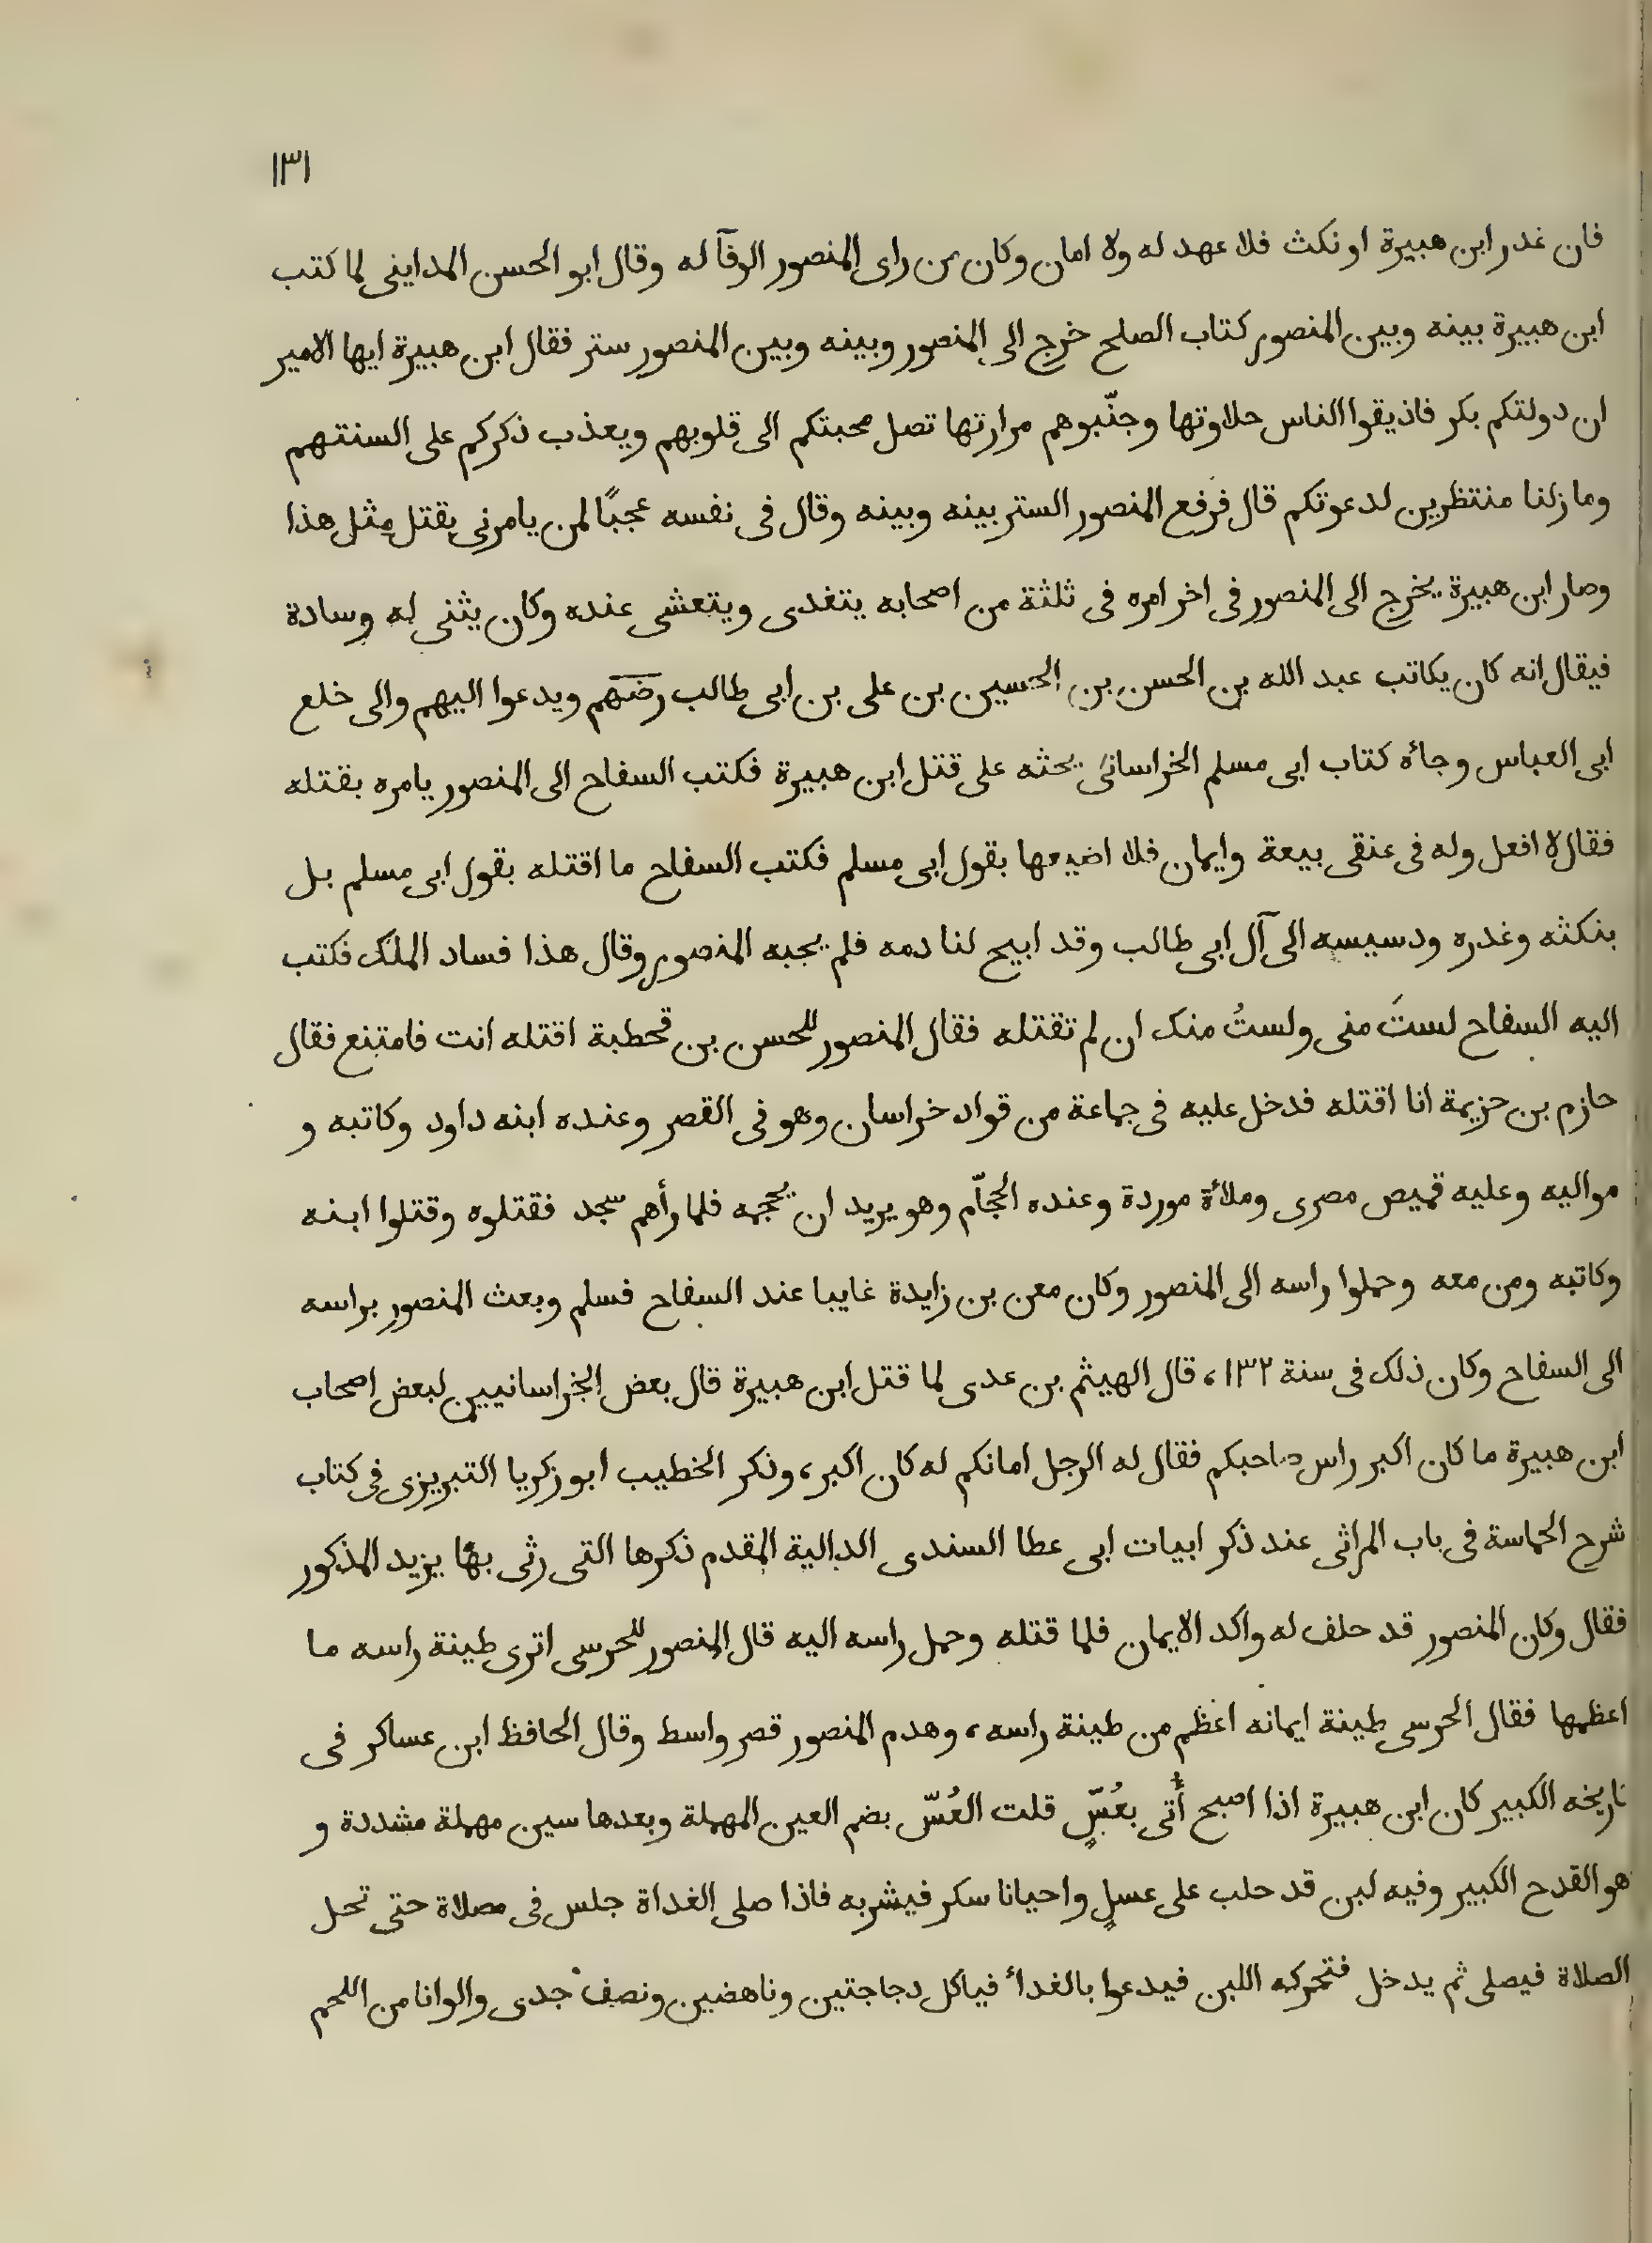 ١٣١
فان غدر ابن هبيرة او نكث فلا عهد له ولا امان وكان من راى المنصور الوفآ له وقال ابو الحسن المداينى لما كتب
ابن هبيرة بينه وبين المنصور كتاب الصلح خرج الى المنصور وبينه وبين المنصور ستر فقال ابن هبيرة ايها الامير
ان دولتكم بكر فاذيقوا الناس حلاوتها وجنّبوهم مرارتها تصل محبتكم الى قلوبهم ويعذب ذكركم على السنتهم
وما زلنا منتظرين لدعوتكم قال فرفع المنصور الستر بينه وبينه وقال فى نفسه عجبًا لمن يامرنى بقتل مثل هذا
وصار ابن هبيرة يخرج الى المنصور فى اخر امره فى ثلثة من اصحابه يتغدى ويتعشى عنده وكان يثنى له وسادة
فيقال انه كان يكاتب عبد الله بن الحسن بن الحسين بن على بن ابى طالب رضهم ويدعوا اليهم والى خلع
ابى العباس وجأه كتاب ابى مسلم الخراسانى يحثه على قتل ابن هبيرة فكتب السفاح الى المنصور يامره بقتله
فقال لا افعل وله فى عنقى بيعة وايمان فلا اضيعها بقول ابى مسلم فكتب السفاح ما اقتله بقول ابى مسلم بل
بنكثه وغدره ودسيسه الى آل ابى طالب وقد ابيح لنا دمه فلم يجبه المنصور وقال هذا فساد الملك فكتب
اليه السفاح لستَ منى ولستُ منك ان لم تقتله فقال المنصور للحسن بن قحطبة اقتله انت فامتنع فقال
حازم بن حزيمة انا اقتله فدخل عليه فى جماعة من قواد خراسان وهو فى القصر وعنده ابنه داود وكاتبه و
مواليه وعليه قميص مصرى وملأة موردة وعنده الحجّام وهو يريد ان يحجمه فلما رأهم سجد فقتلوه وقتلوا ابنه
وكاتبه ومن معه وحملوا راسه الى المنصور وكان معن بن زايدة غايبا عند السفاح فسلم وبعث المنصور براسه
الى السفاح وكان ذلك فى سنة ١٣٢، قال الهيثم بن عدى لما قتل ابن هبيرة قال بعض الخراسانيين لبعض اصحاب
ابن هبيرة ما كان اكبر راس صاحبكم فقال له الرجل امانكم له كان اكبر، وذكر الخطيب ابو زكريا التبريزى فى كتاب
شرح الحماسة فى باب المراثى عند ذكر ابيات ابى عطا السندى الدالية المقدم ذكرها التى رثى بها يزيد المذكور
فقال وكان المنصور قد حلف له واكد الايمان فلما قتله وحمل راسه اليه قال المنصور للحرسى اترى طينة راسه ما
اعظمها فقال الحرسى طينة ايمانه اعظم من طينة راسه، وهدم المنصور قصر واسط وقال الحافظ ابن عساكر فى
تاريخه الكبير كان ابن هبيرة اذا اصبح أُتى بعُسٍّ قلت العُسّ بضم العين المهملة وبعدها سين مهملة مشددة و
هو القدح الكبير وفيه لبن قد حلب على عسلٍ واحيانا سكر فيشربه فاذا صلى الغداة جلس فى مصلاة حتى تحل
الصلاة فيصلى ثم يدخل فتحركه اللبن فيدعوا بالغدأ فياكل دجاجتين وناهضين ونصف جدى والوانا من اللحم